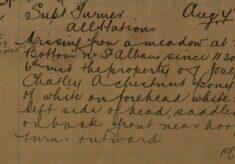 Supt Turner Aug 4
All Stations
Missing from a meadow at
Bottom Nr St Albans since 11 30
6th inst the property of Jose
Chatley A chestnut pony
of white on forehead white
left side of head, saddle
on back front near hoof
turns outward.